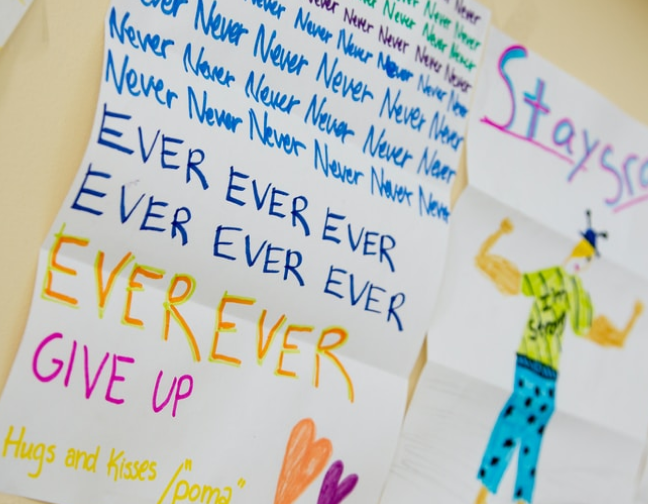 Never
Never Never
Never Never Never
Never Never Never Never
Never Never Never Never Never
Never Never Never Never Never
Never Never Never Never Never
Never Never Never Never Never Never
Never Never Never Never Never Never
EVER EVER EVER
EVER EVER EVER
EVER EVER
GIVE UP
Hugs and Kisses / "poma"
Stay
I'm
Strong